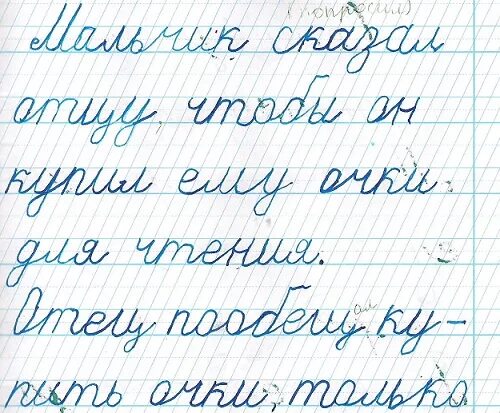 (попросил)
Мальчик сказал
отцу, чтобы он
купил ему очки
для чтения.
Отец пообещал ку-
пить очки, только